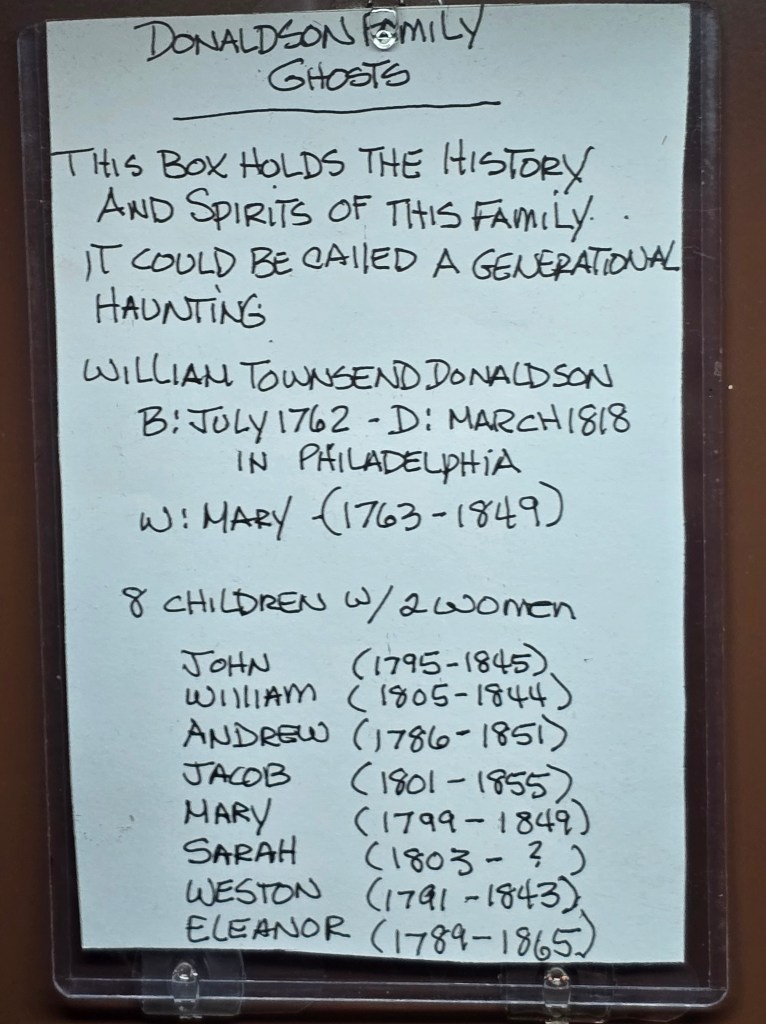 DONALDSON FAMILY
GHOSTS
THIS BOX HOLDS THE HISTORY
AND SPIRITS OF THIS FAMILY.
IT COULD BE CALLED A GENERATIONAL
HAUNTING
WILLIAM TOWNSEND DONALDSON
B: JULY 1762 - D: MARCH 1818
IN PHILADELPHIA
W: MARY - (1763-1849)
8 CHILDREN W/ 2 WOMEN
JOHN (1795-1845)
WILLIAM (1805-1844)
ANDREW (1786-1851)
JACOB (1801-1855)
MARY (1799-1849)
SARAH (1803-?)
WESTON (1791-1843)
ELEANOR (1789-1865)